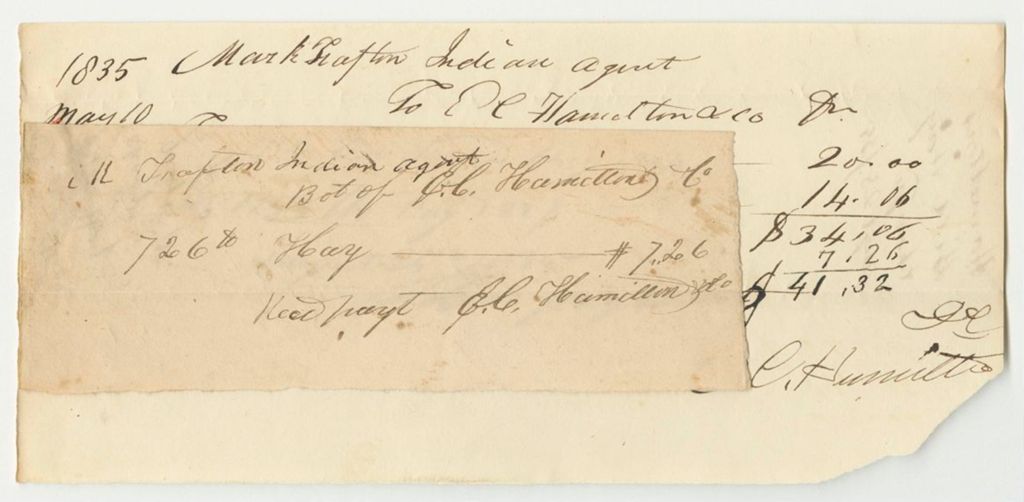 1835 Mark Trafton Indian agent
May 10 To E C Hamilton & Co Dr.
20.00
14.06
$34.06
7.26
$41.32
C. Hamilton
k Trafton Indian agent
Bot of E.C. Hamilton & Co
726 lb Hay $7.26
Recd payt E.C. Hamilton & Co